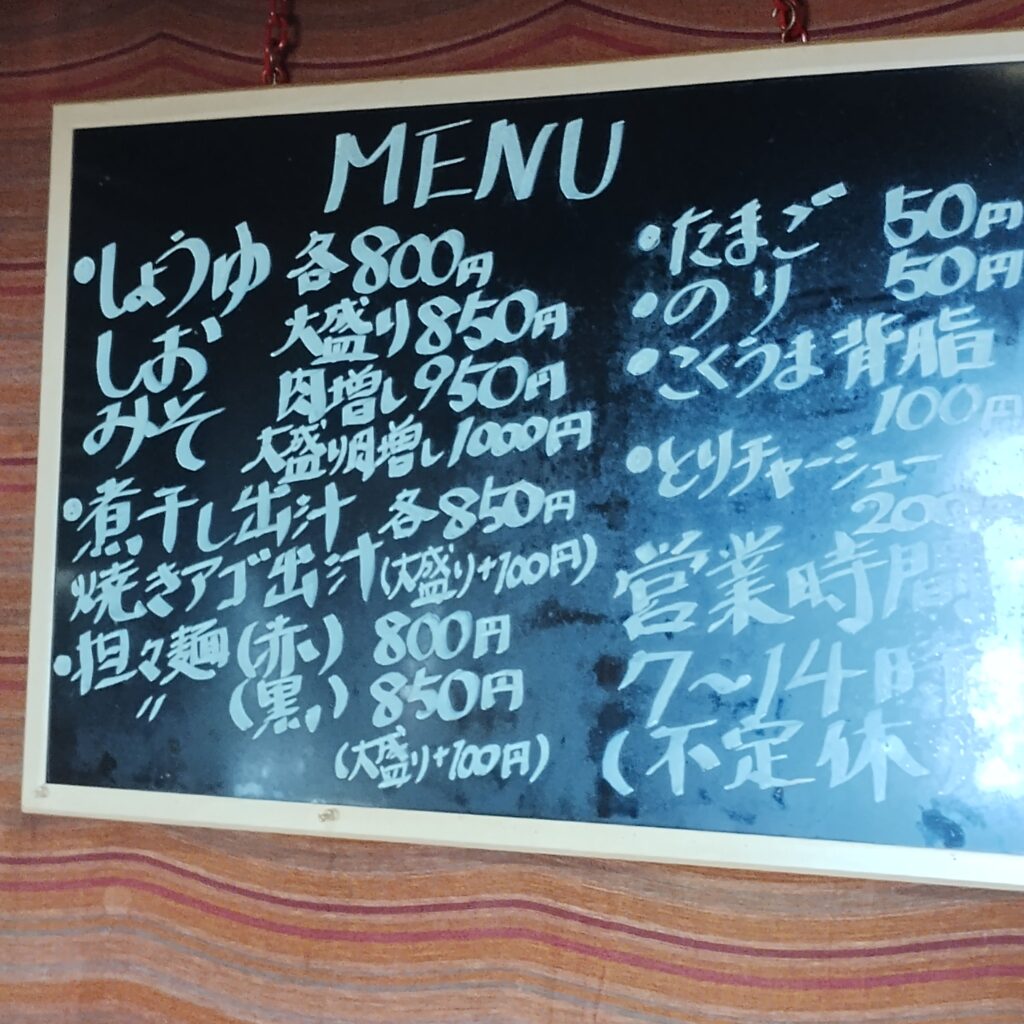 MENU
・しょうゆ 各800円
しお 大盛り850円
みそ 肉増し950円
大盛り肉増し1000円
・煮干し出汁 各850円
焼きアゴ出汁(大盛り+100円)
・担々麺(赤) 800円
〃 (黒) 850円
(大盛り+100円)
・たまご 50円
・のり 50円
・こくうま背脂
100円
・とりチャーシュー
200
営業時間
7〜14時
(不定休)